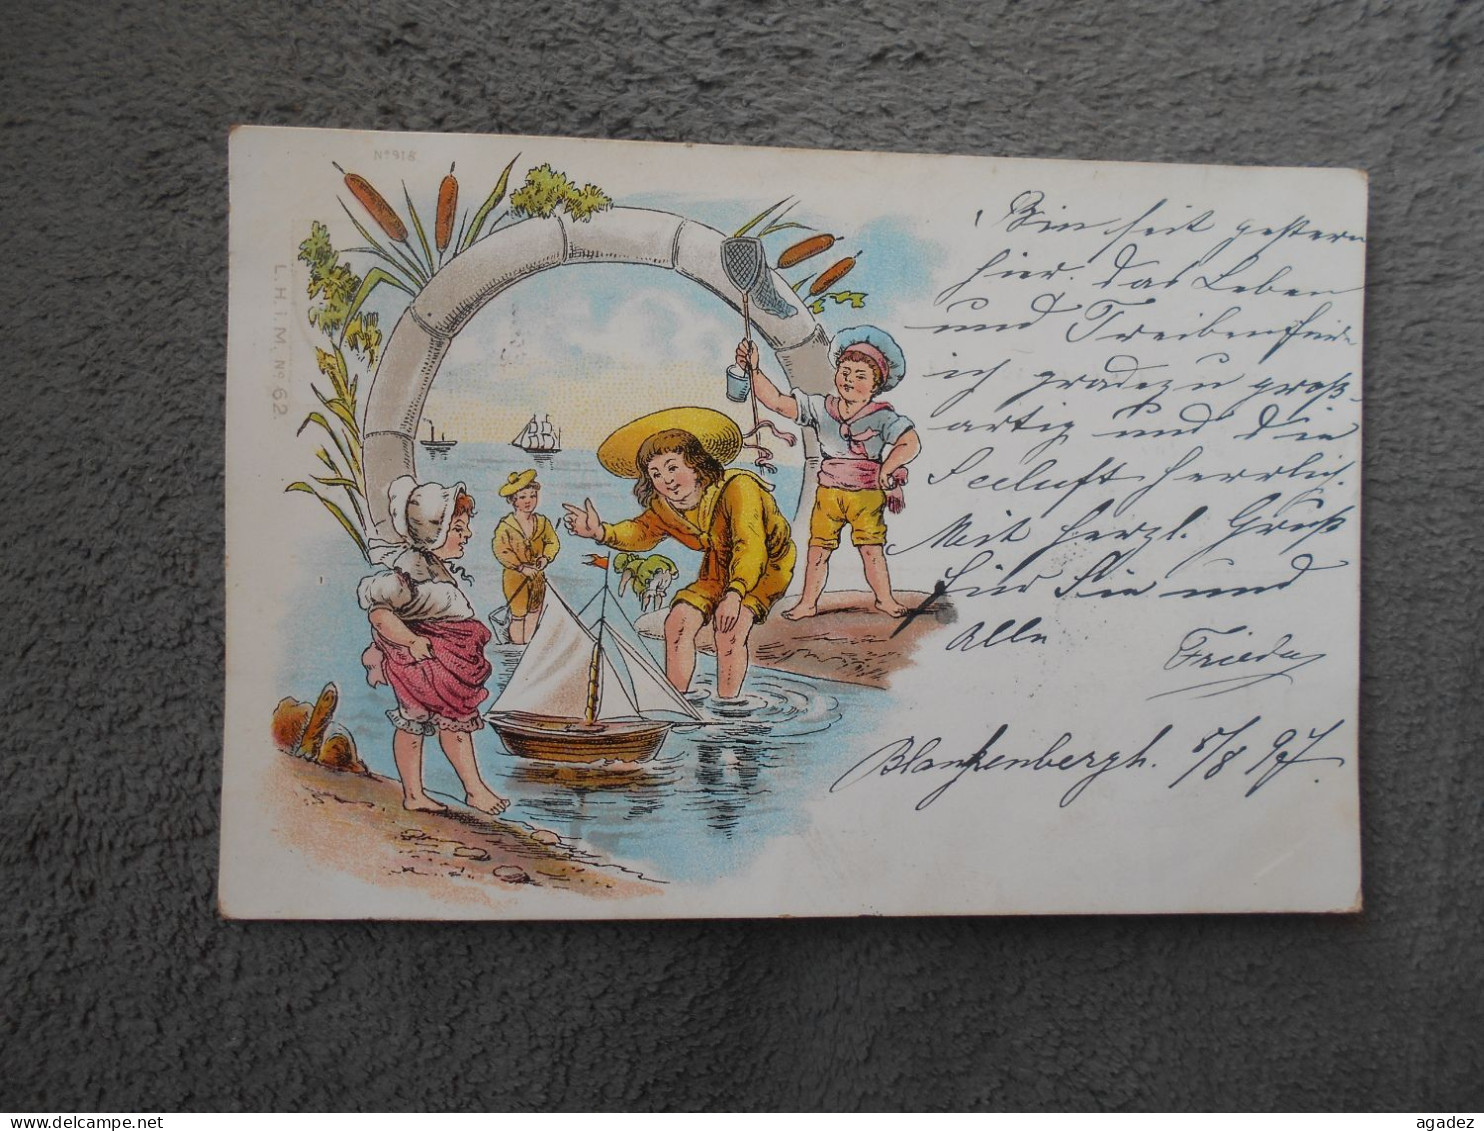 No 918
L.H.i.M. No 62.
Bin seit gestern
hier. Das Leben
und Treiben finde
ich gradezu groß-
artig und die
Seeluft herrlich.
Mit herzl. Gruß
für Sie und
Alle
Frieda
Blankenbergh. 5/8 97.
agadez
www.delcampe.net